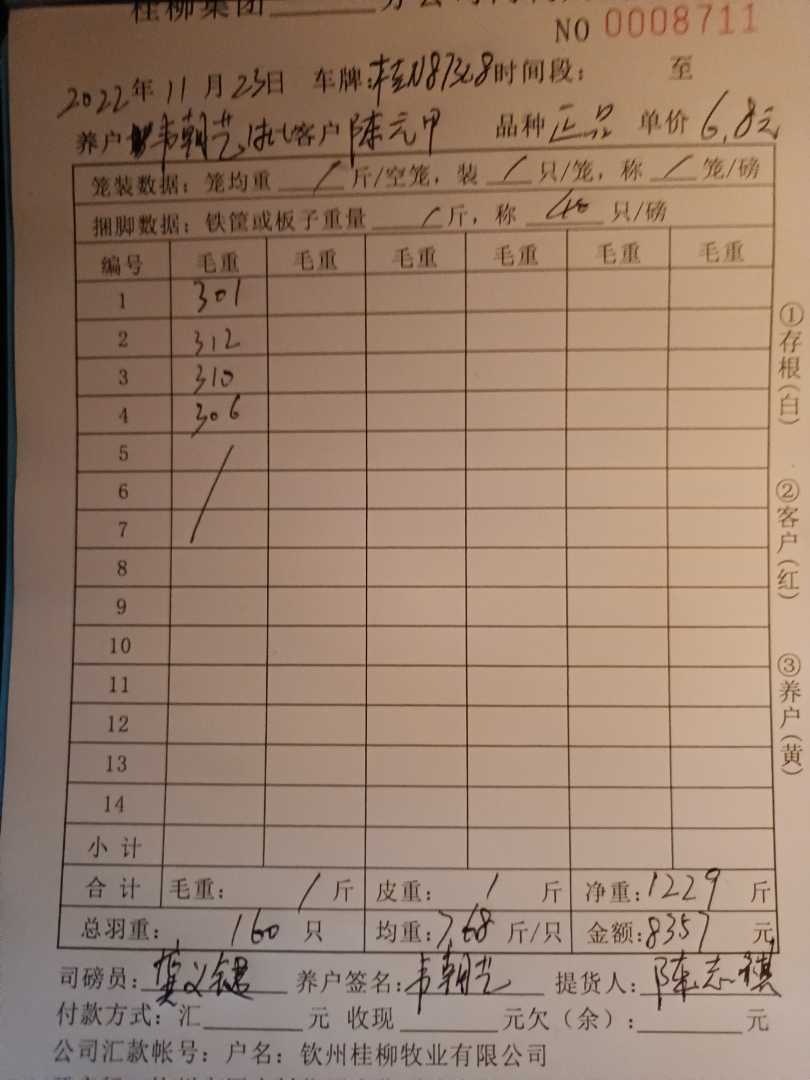 桂柳集团
NO 0008711
2022年 11月 23日 车牌:桂N87368 时间段: 至
养户 韦朝艺 客户 陈元甲 品种 正品 单价 6.8元
笼装数据: 笼均重 / 斤/空笼, 装 / 只/笼, 称 / 笼/磅
捆脚数据: 铁筐或板子重量 / 斤, 称 40 只/磅
编号 毛重 毛重 毛重 毛重 毛重 毛重
1 301
2 312
3 310
4 306
5
6 /
7
8
9
10
11
12
13
14
小计
合计 毛重: / 斤 皮重: / 斤 净重:1229 斤
总羽重: 160 只 均重:7.68 斤/只 金额:8357 元
司磅员: 养户签名:韦朝艺 提货人:陈志祺
付款方式: 汇 元 收现 元欠(余): 元
公司汇款帐号: 户名: 钦州桂柳牧业有限公司
①存根(白)
②客户(红)
③养户(黄)